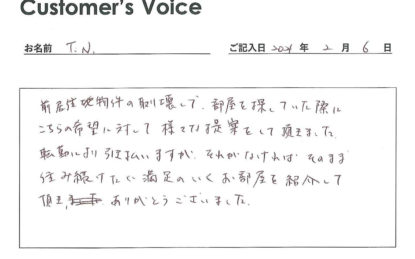 Customer's Voice
お名前 T.N. ご記入日 2021 年 2 月 6 日
前居住地物件の取り壊しで、部屋を探していた際に
こちらの希望に対して様々な提案をして頂きました。
転勤により引払いますが、それがなければそのまま
住み続けたい満足のいくお部屋を紹介して
頂き、ありがとうございました。